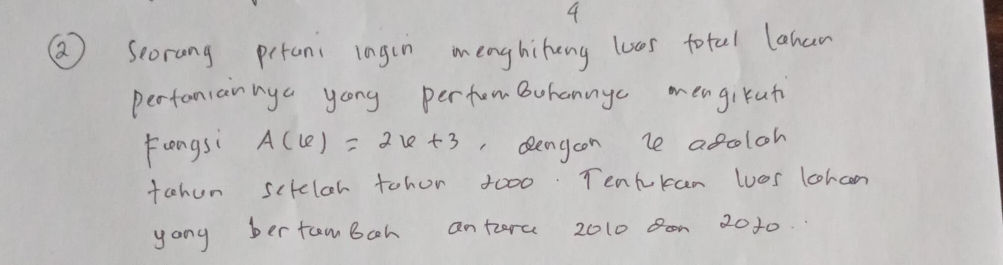 4
② Seorang petani ingin menghitung luas total lahan
pertaniannya yang pertumbuhannya mengikuti
fungsi A(t) = 2t + 3, dengan t adalah
tahun setelah tahun 2000. Tentukan luas lahan
yang bertambah antara 2010 dan 2020.